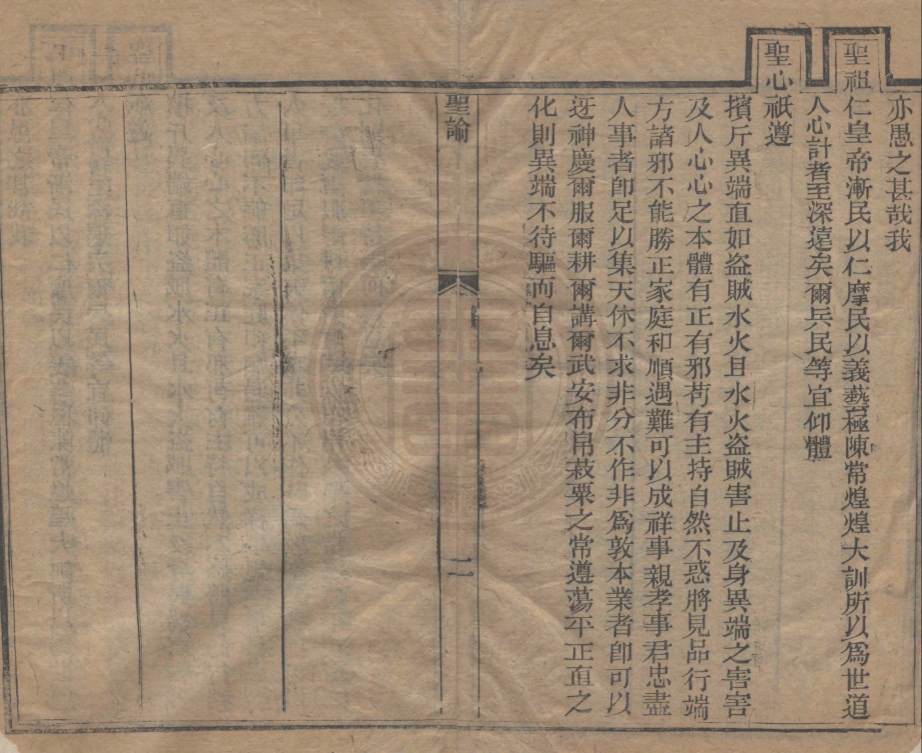 亦愚之甚哉我
聖祖仁皇帝漸民以仁摩民以義藝極陳常煌煌大訓所以爲世道
人心計者至深遠矣爾兵民等宜仰體
聖心祇遵
擯斥異端直如盜賊水火且水火盜賊害止及身異端之害害
及人心心之本體有正有邪苟有主持自然不惑將見品行端
方諸邪不能勝正家庭和順遇難可以成祥事親孝事君忠盡
人事者卽足以集天休不求非分不作非爲敦本業者卽可以
迓神慶爾服爾耕爾講爾武安布帛菽粟之常遵蕩平正直之
化則異端不待驅而自息矣
聖諭
二